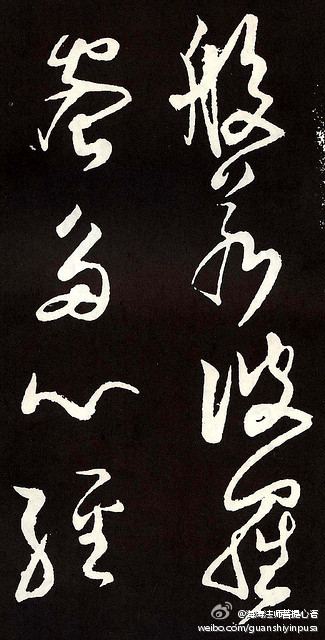 般若波羅
蜜多心經
法师菩提心语
weibo.com/guanshiyinpusa